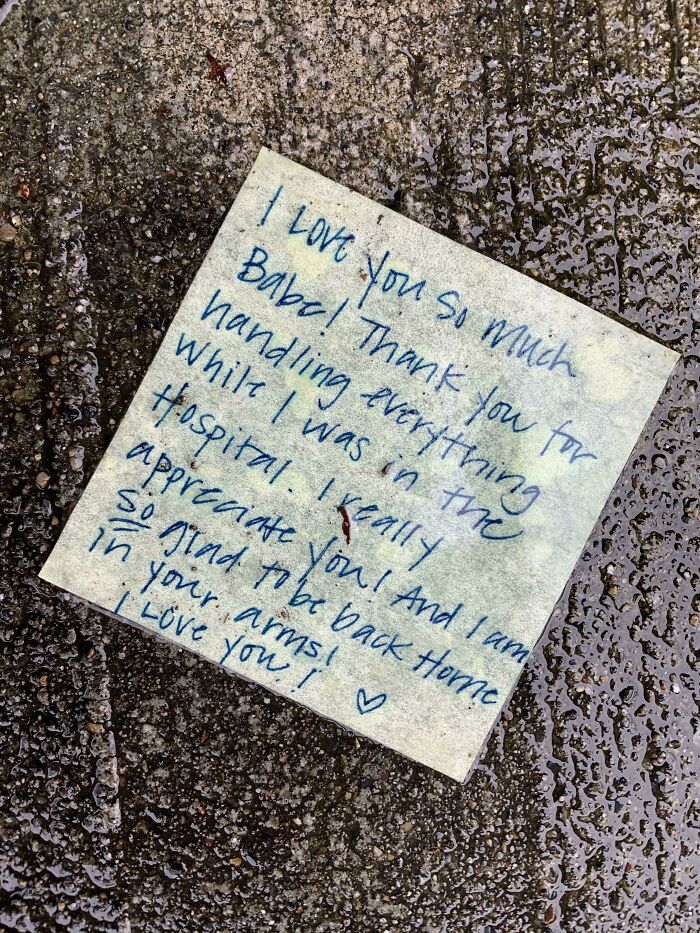 I Love you so much
Babe! Thank you for
handling everything
while I was in the
Hospital. I really
appreciate you! And I am
so glad to be back Home
in your arms!
I Love you! ♡